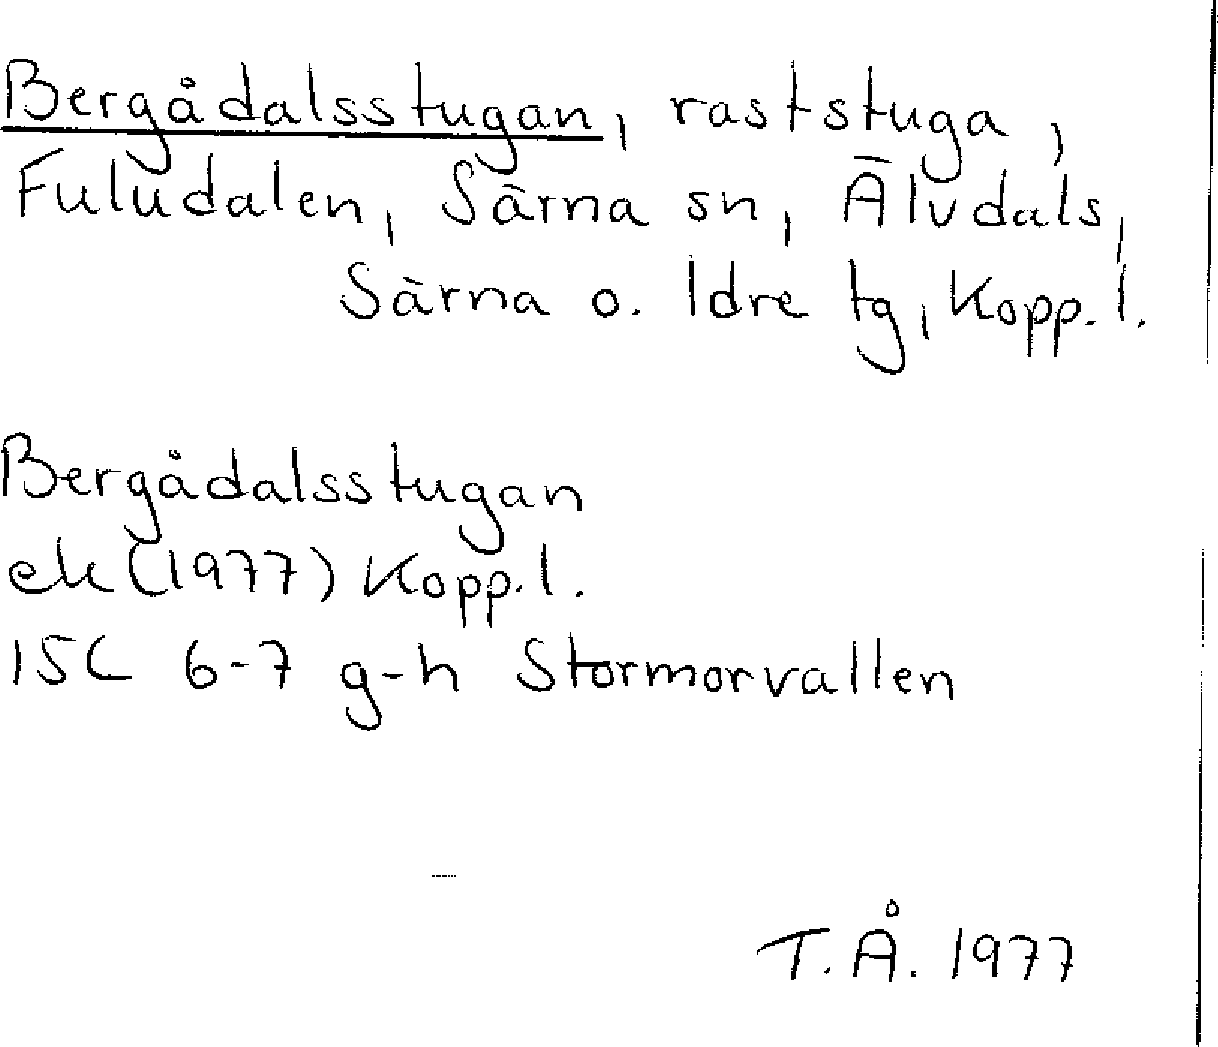 Bergådalsstugan, raststuga,
Fuludalen, Särna sn, Älvdals,
Särna o. Idre tg, Kopp. l.
Bergådalsstugan
ek (1977) Kopp. l.
15C 6-7 g-h Stormorvallen
T. Å. 1977